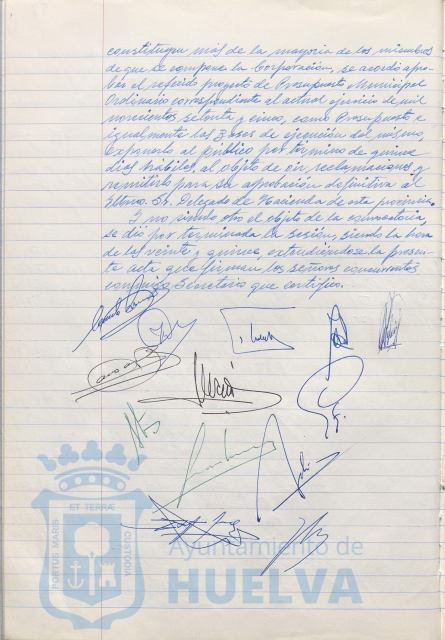 constituyen más de la mayoría de los miembros
de que se compone la Corporación, se acordó apro-
bar el referido proyecto de Presupuesto Municipal
Ordinario correspondiente al actual ejercicio de mil
novecientos setenta y cinco, como Presupuesto e
igualmente las Bases de ejecución del mismo,
Exponerlo al público por término de quince
días hábiles, al objeto de oir reclamaciones y
remitirlo para su aprobación definitiva al
Iltmo. Sr. Delegado de Hacienda de esta provincia.
Y no siendo otro el objeto de la convocatoria,
se dió por terminada la sesión, siendo la hora
de las veinte y quince, extendiéndose la presen-
te acta que firman los señores concurrentes
conmigo Secretario que certifico.
ET TERRÆ
PORTUS MARIS
CUSTODIA
Ayuntamiento de
HUELVA